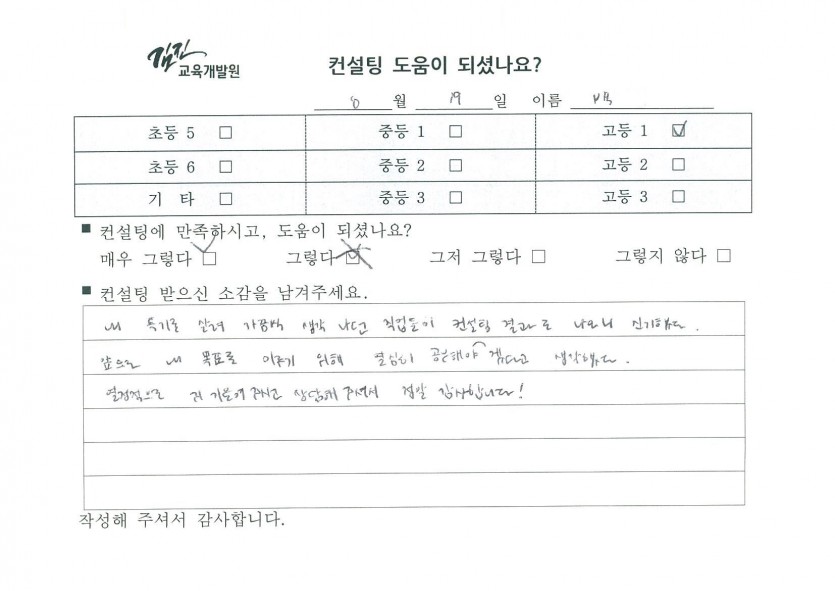 김진
교육개발원
컨설팅 도움이 되셨나요?
월 19 일 이름
초등 5 □ 중등 1 □ 고등 1 ☑
초등 6 □ 중등 2 □ 고등 2 □
기 타 □ 중등 3 □ 고등 3 □
■ 컨설팅에 만족하시고, 도움이 되셨나요?
매우 그렇다 □ 그렇다 □ 그저 그렇다 □ 그렇지 않다 □
■ 컨설팅 받으신 소감을 남겨주세요.
내 특기를 살려 가끔씩 생각 나던 직업들이 컨설팅 결과로 나오니 신기했다.
앞으로 내 목표를 이루기 위해 열심히 공부해야 겠다고 생각했다.
열정적으로 저 기분여주시고 상담해 주셔서 정말 감사합니다!
작성해 주셔서 감사합니다.